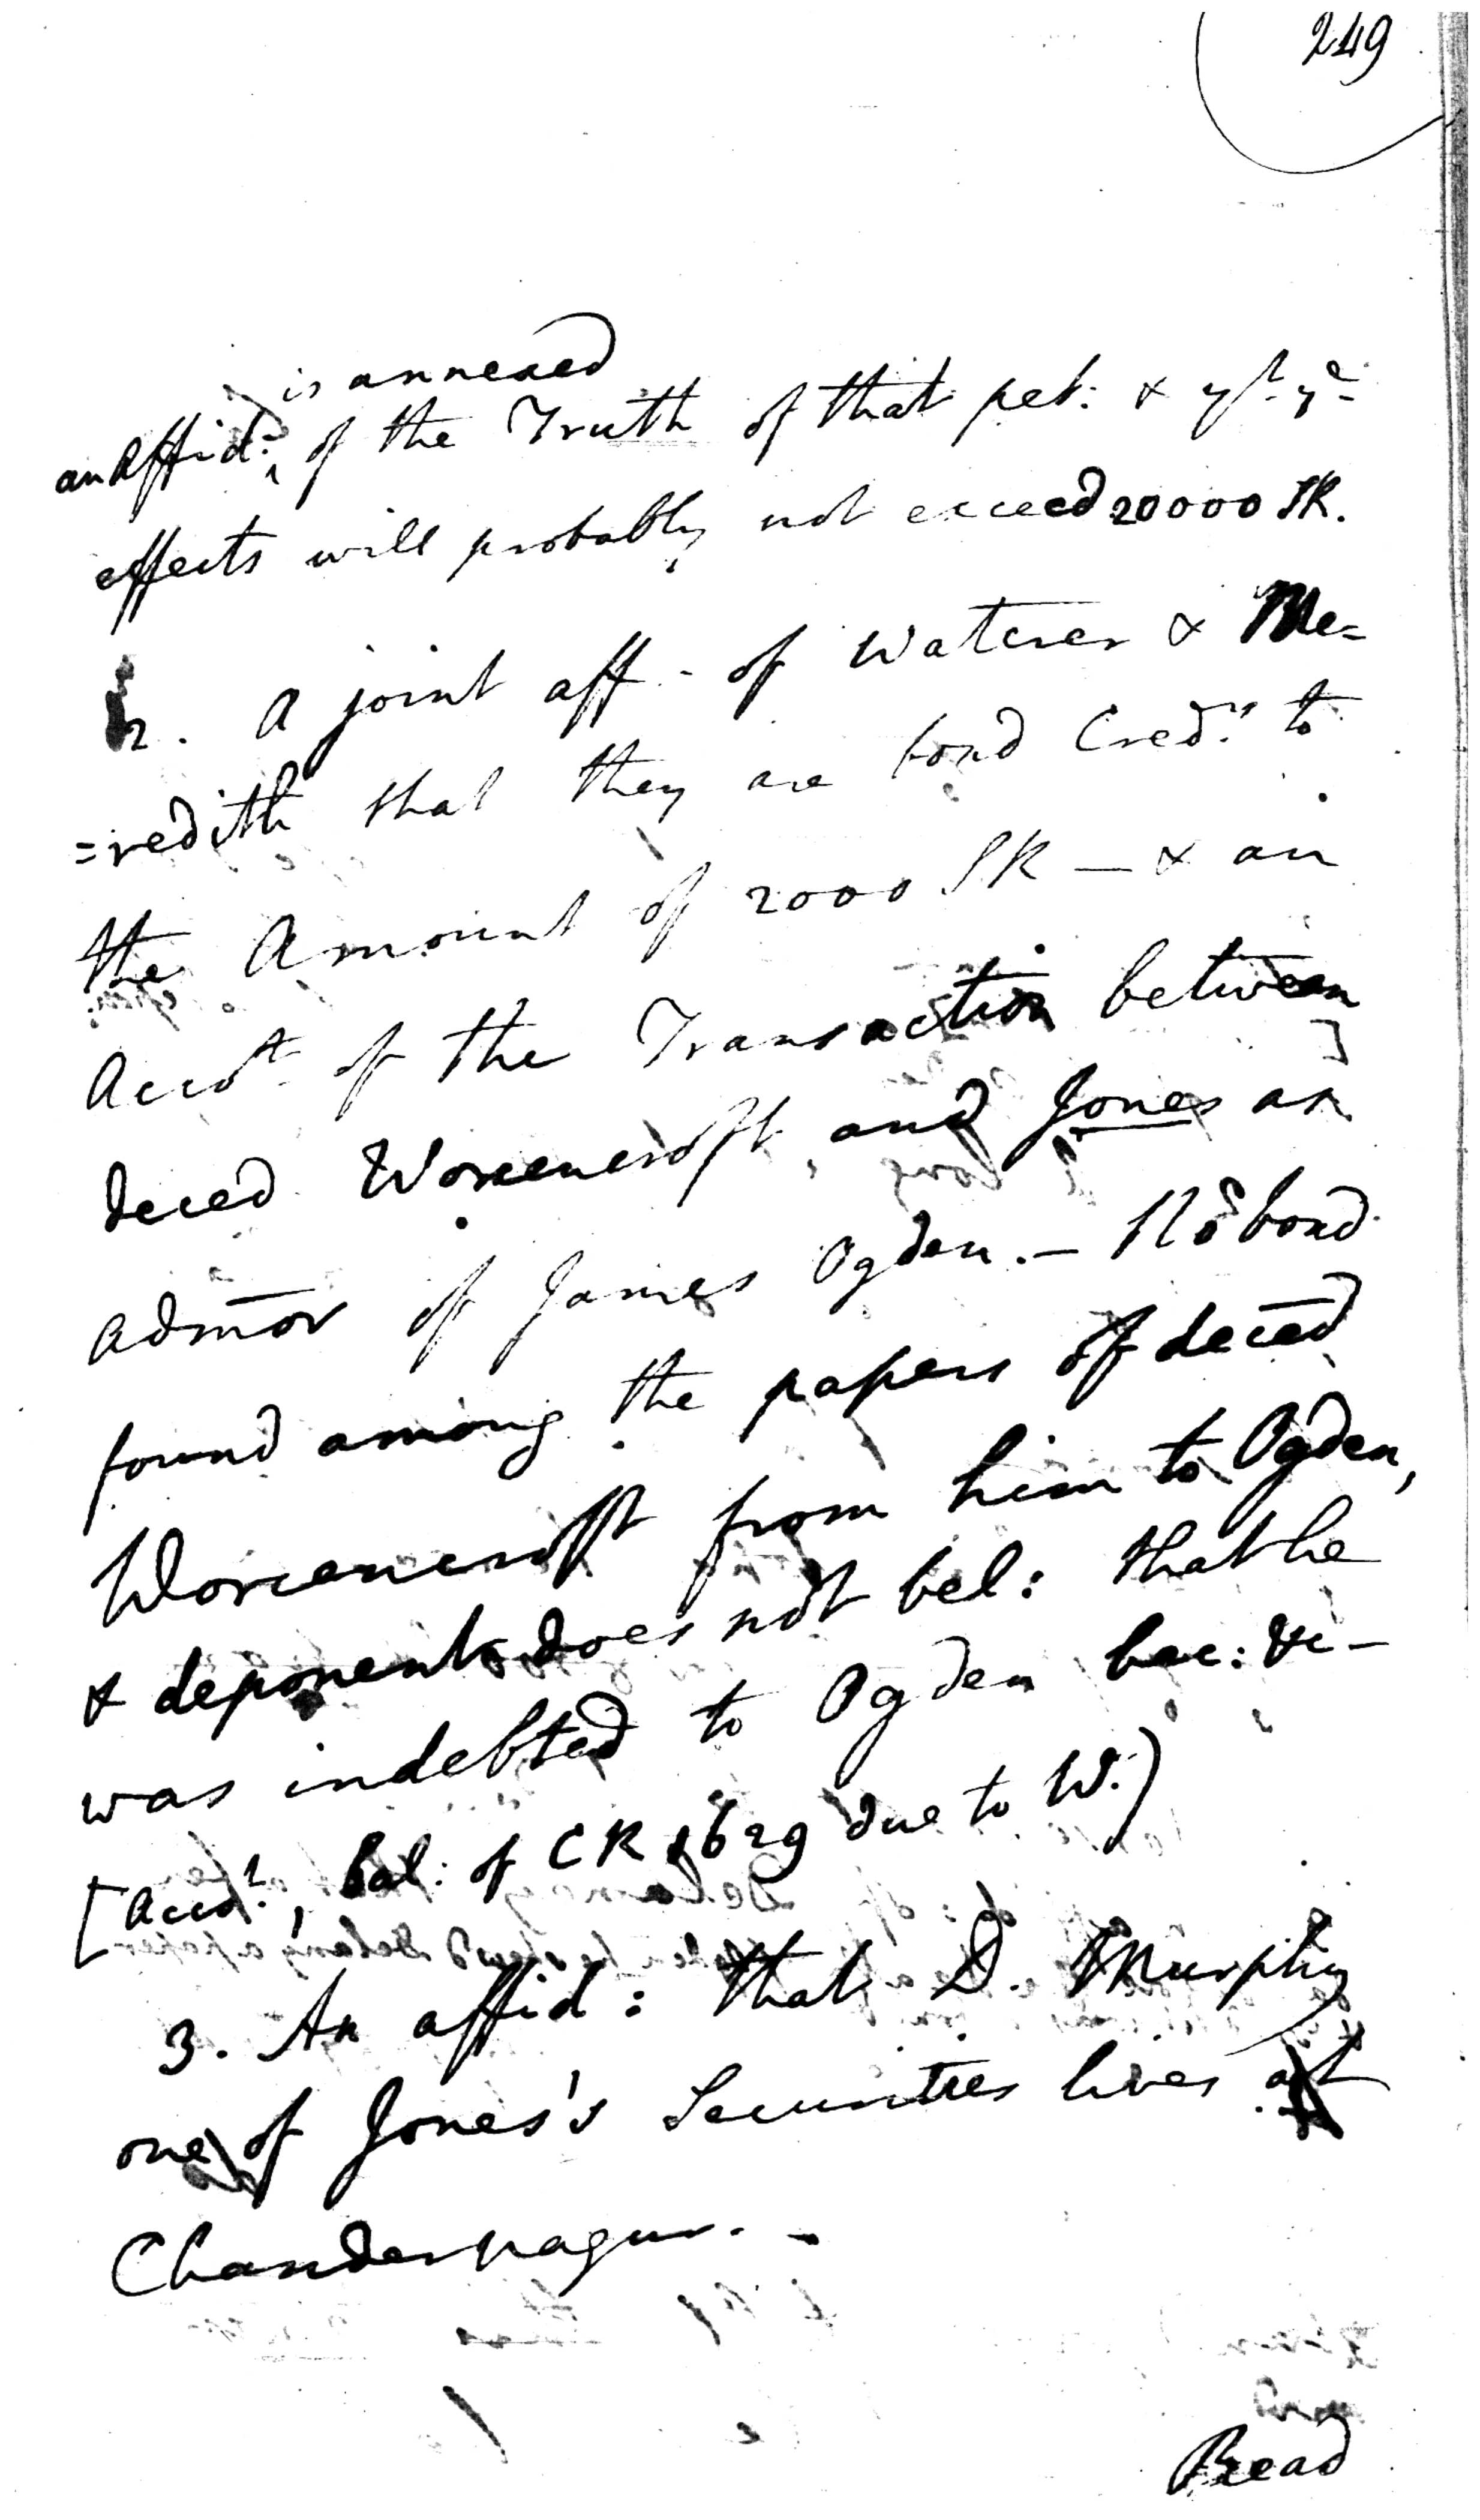 249
is annexed
an Affid:t of the Truth of that pet: & yt ye
effects will probably not exceed 20000 SR.
2. A joint aff - of Waterer & Me=
=redith that they are bond Credrs to
the Amount of 2000 SR — & an
Acct of the Transaction between
deced Worsencroft and Jones as
admor of James Ogden. — No bond
found among the papers of deced
Worsencroft from him to Ogden,
& deponents does not bel: that he
was indebted to Ogden bec: &c —
[Acct, Bal: of CR 1629 due to W.)
3. An affid: that D. Murphy
one of Jones's Securities lives at
Chandernagur. -
Read